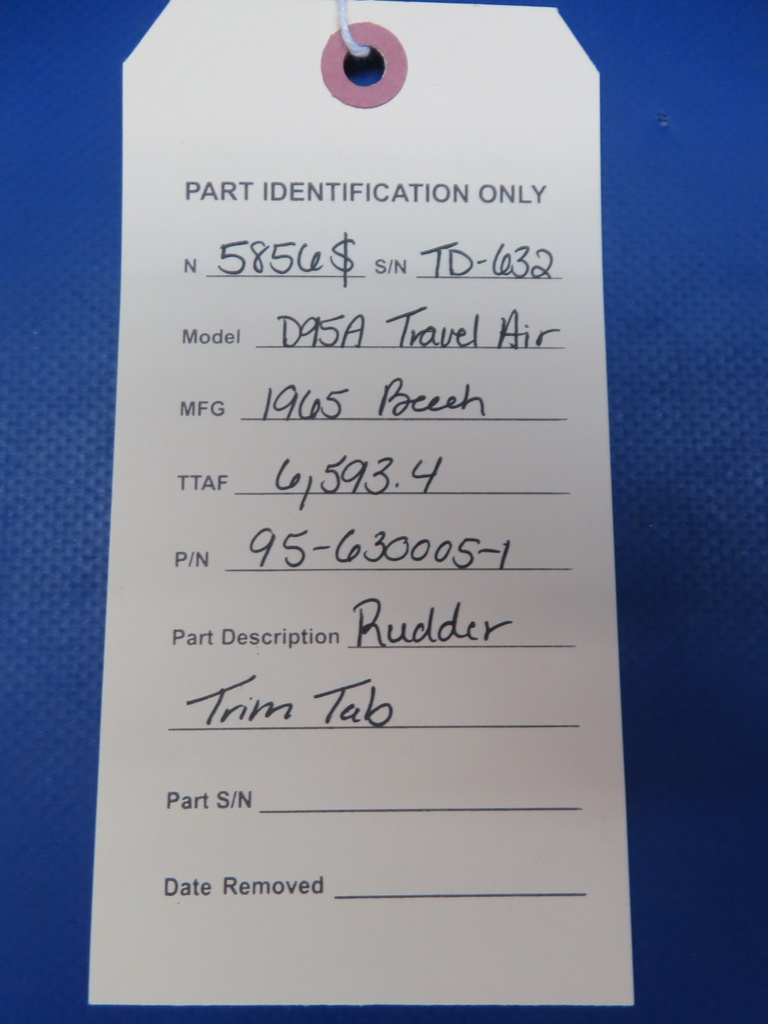 PART IDENTIFICATION ONLY
N 5856$ S/N TD-632
Model D95A Travel Air
MFG 1965 Beech
TTAF 6,593.4
P/N 95-630005-1
Part Description Rudder
Trim Tab
Part S/N
Date Removed